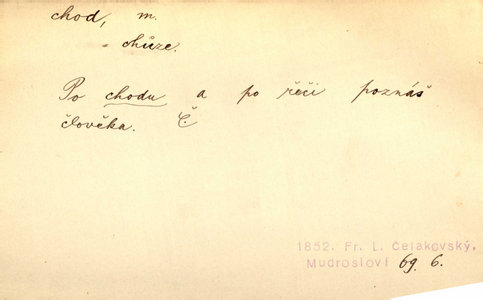 chod, m.
= chůze.
Po chodu a po řeči poznáš
člověka. Č
1852. Fr. L. Čelakovský,
Mudrosloví 69 6.